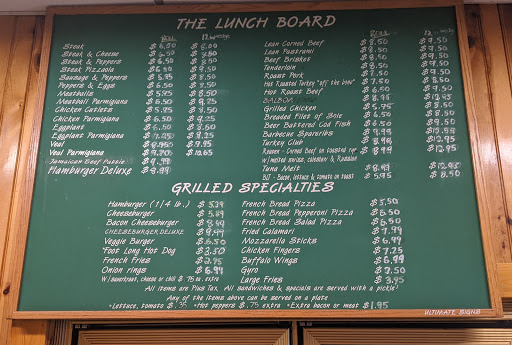 THE LUNCH BOARD
Steak $6.00 $8.00
Steak & Cheese $6.50 $8.50
Steak & Peppers $6.50 $8.50
Steak Pizzaiola $6.50 $8.50
Sausage & Peppers $5.95 $8.50
Peppers & Eggs $6.50 $8.50
Meatballs
Meatball Parmigiana $6.50 $9.25
Chicken Cutlets $5.95 $8.50
Chicken Parmigiana $6.50
Eggplant $6.50
Eggplant Parmigiana
Veal
Veal Parmigiana
Jamaican Beef Pattie
Hamburger Deluxe
Lean Corned Beef $8.50 $9.50
Lean Pastrami $8.50 $9.50
Beef Brisket $8.50 $9.50
Tenderloin
Roast Pork
Hot Roasted Turkey "off the bone"
Hot Roast Beef
BALBOA
Grilled Chicken
Breaded Filet of Sole
Beer Battered Cod Fish
Barbecue Spareribs
Turkey Club
Reuben - Corned Beef on toasted rye
w/melted swiss, coleslaw & Russian
Tuna Melt $8.99
BLT - Bacon, lettuce & tomato on toast $5.95 $8.50
GRILLED SPECIALTIES
Hamburger (1/4 lb.) $5.29
Cheeseburger $5.89
Bacon Cheeseburger
CHEESEBURGER DELUXE $9.99
Veggie Burger $6.50
Foot Long Hot Dog $3.50
French Fries $2.95
Onion rings $6.99
W/sauerkraut, cheese or chili $.75 ea. extra
French Bread Pizza $5.50
French Bread Pepperoni Pizza $6.50
French Bread Salad Pizza $6.50
Fried Calamari $7.99
Mozzarella Sticks $6.99
Chicken Fingers $7.25
Buffalo Wings $6.99
Gyro $7.50
Large Fries $3.95
All items are Plus Tax. All sandwiches & specials are served with a pickle!
Any of the items above can be served on a plate
•Lettuce, tomato $.35 •Hot peppers $.75 extra •Extra bacon or meat $1.95
ULTIMATE SIGNS